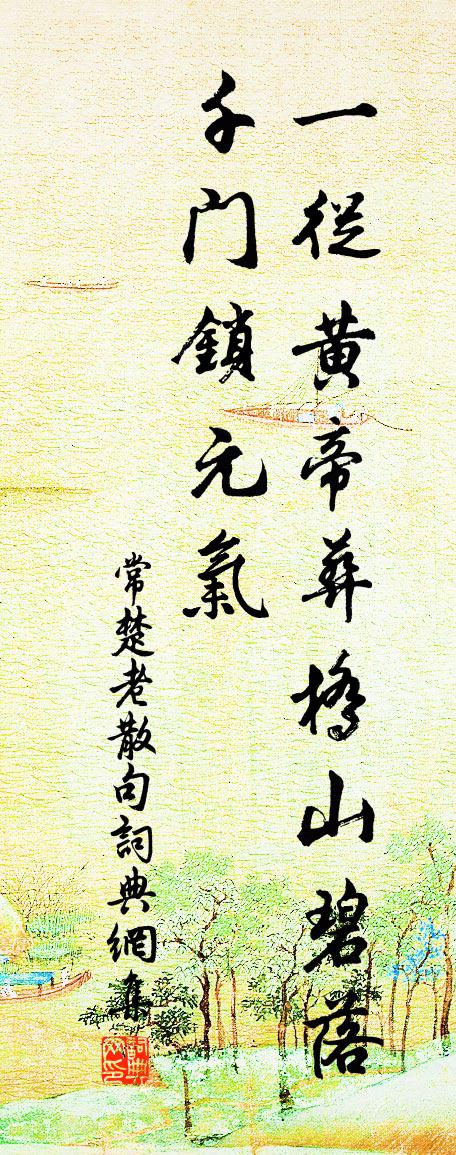 一從黃帝葬橋山碧落
千門鎖元氣
常楚老散句詞典網集